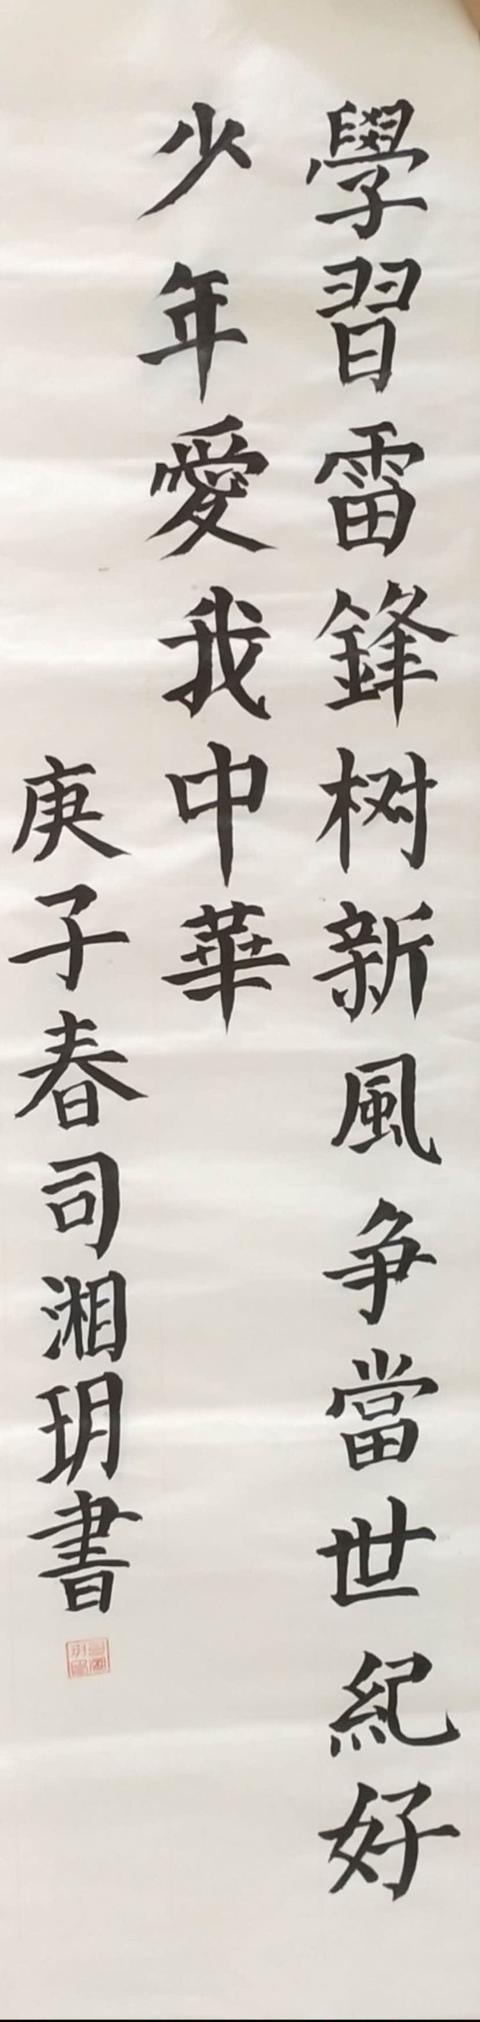 學習雷鋒树新風争當世紀好
少年愛我中華
庚子春司湘玥書